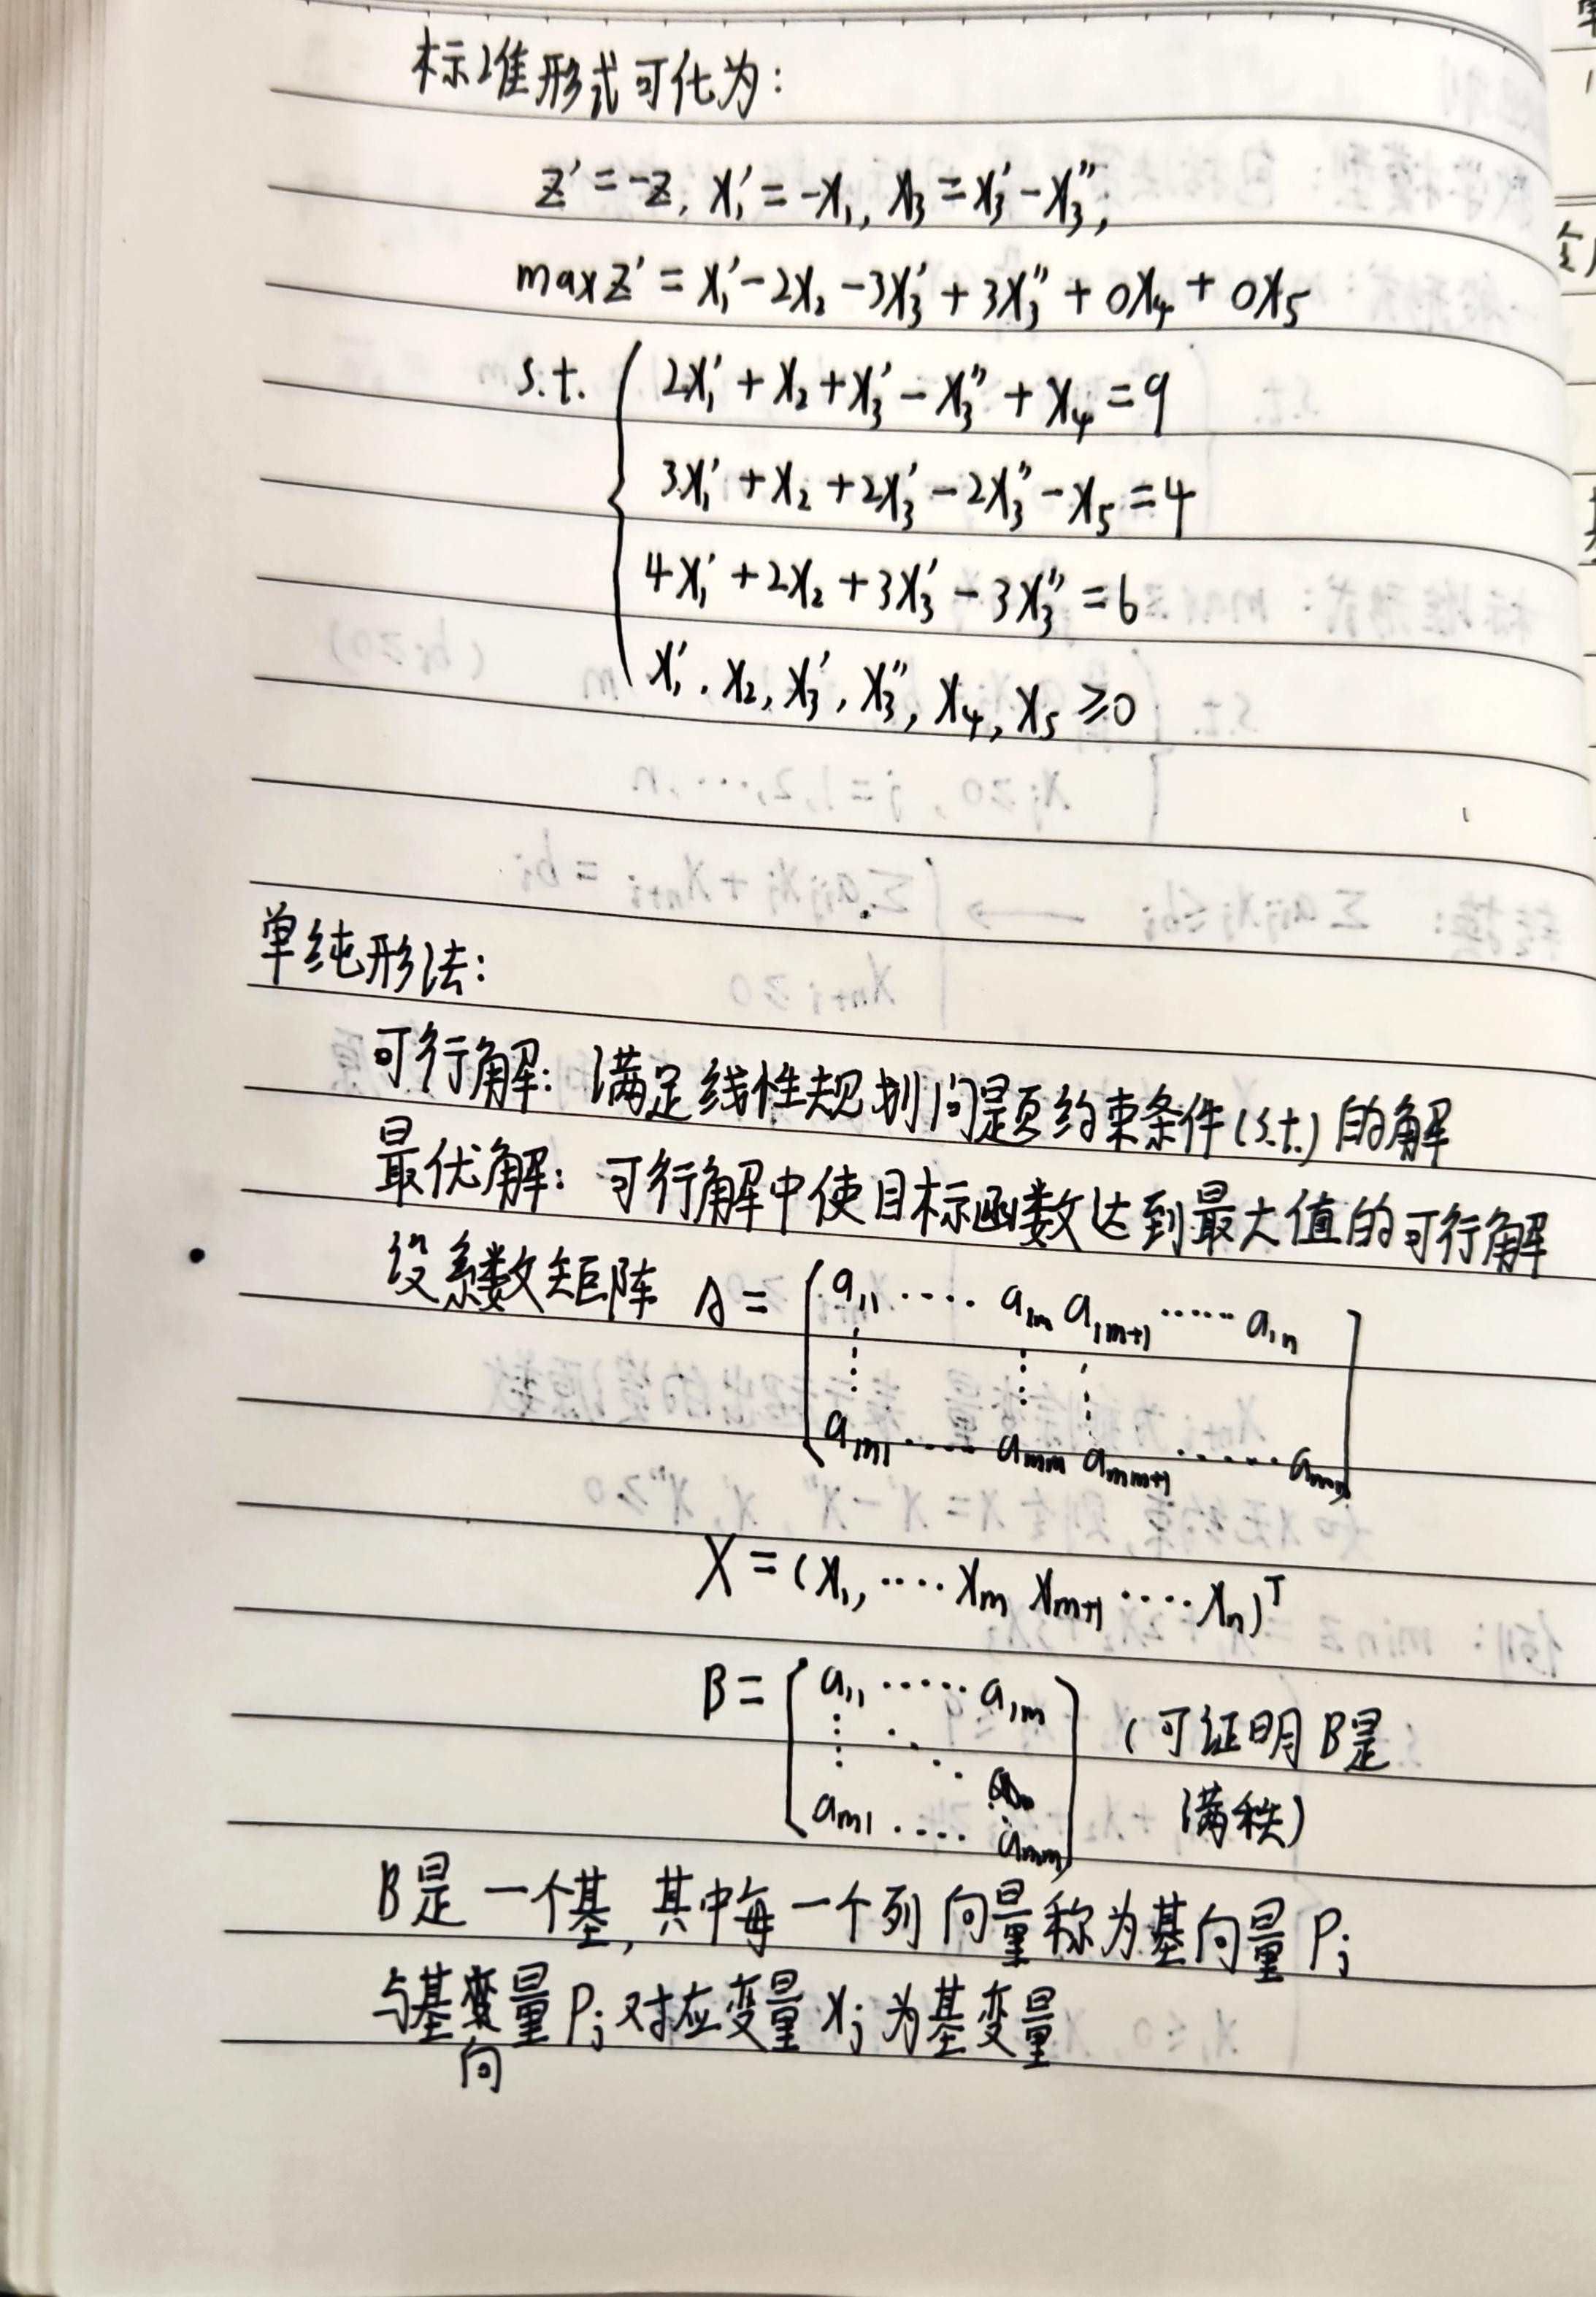 标准形式可化为:
z' = -z, x₁' = -x₁, x₃ = x₃' - x₃'',
max z' = x₁' - 2x₂ - 3x₃' + 3x₃'' + 0x₄ + 0x₅
s.t. { 2x₁' + x₂ + x₃' - x₃'' + x₄ = 9
3x₁' + x₂ + 2x₃' - 2x₃'' - x₅ = 4
4x₁' + 2x₂ + 3x₃' - 3x₃'' = 6
x₁', x₂, x₃', x₃'', x₄, x₅ ≥ 0
单纯形法:
可行解: 满足线性规划问题约束条件(s.t.)的解
最优解: 可行解中使目标函数达到最大值的可行解
设系数矩阵 A = [ a₁₁ ···· a₁ₘ a₁ₘ₊₁ ······ a₁ₙ
⋮ ⋮ ⋮
aₘ₁ ····· aₘₘ aₘₘ₊₁ ······ aₘₙ ]
X = (x₁, ···· xₘ xₘ₊₁ ···· xₙ)ᵀ
B = [ a₁₁ ······ a₁ₘ
⋮ ⋱
aₘ₁ ···· aₘₘ ] (可证明B是
满秩)
B是一个基, 其中每一个列向量称为基向量 Pⱼ
与基向量 Pⱼ 对应变量 xⱼ 为基变量